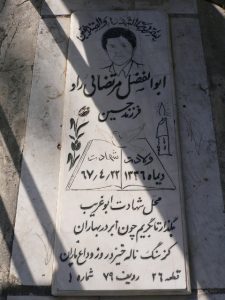 ابوالفضل مرتضائی راد
فرزند حسین
ولادت شهادت
دیماه ۱۳۴۶ ۶۷,۴,۲۲
محل شهادت ابوغریب
بگذار تا بگریم چون ابر در بهاران
کز سنگ ناله خیزد روز وداع یاران
قطعه ۲۶ ردیف ۷۹ شماره ۱